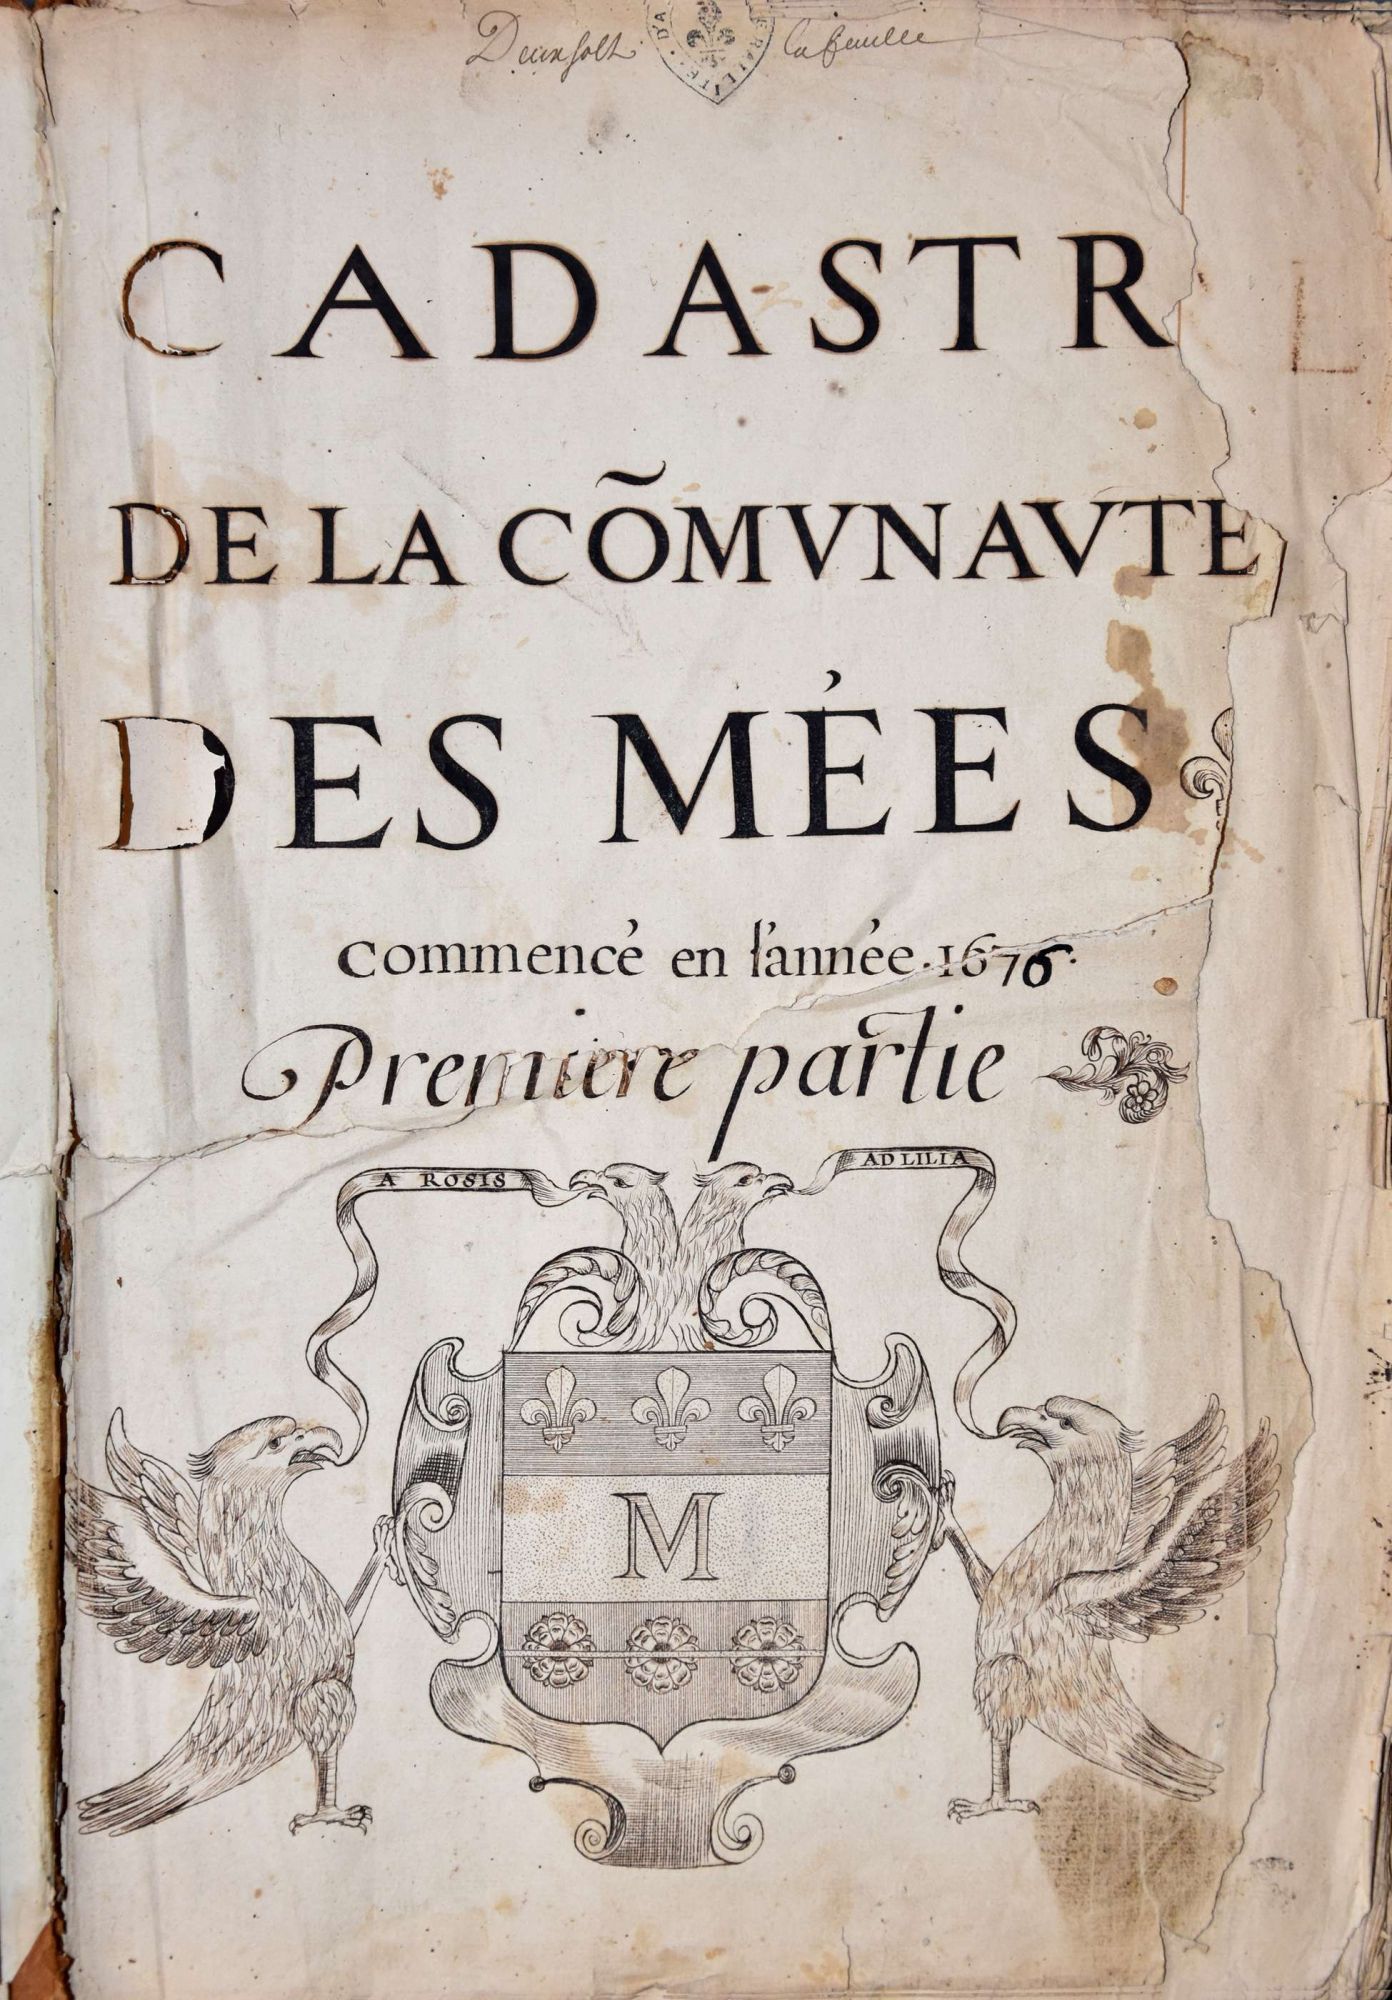 Deux solz la feuille
CADASTR
DE LA CÕMVNAVTE
DES MÉES
Commencé en l'année.1676.
Premiere partie
A ROSIS
AD LILIA
M